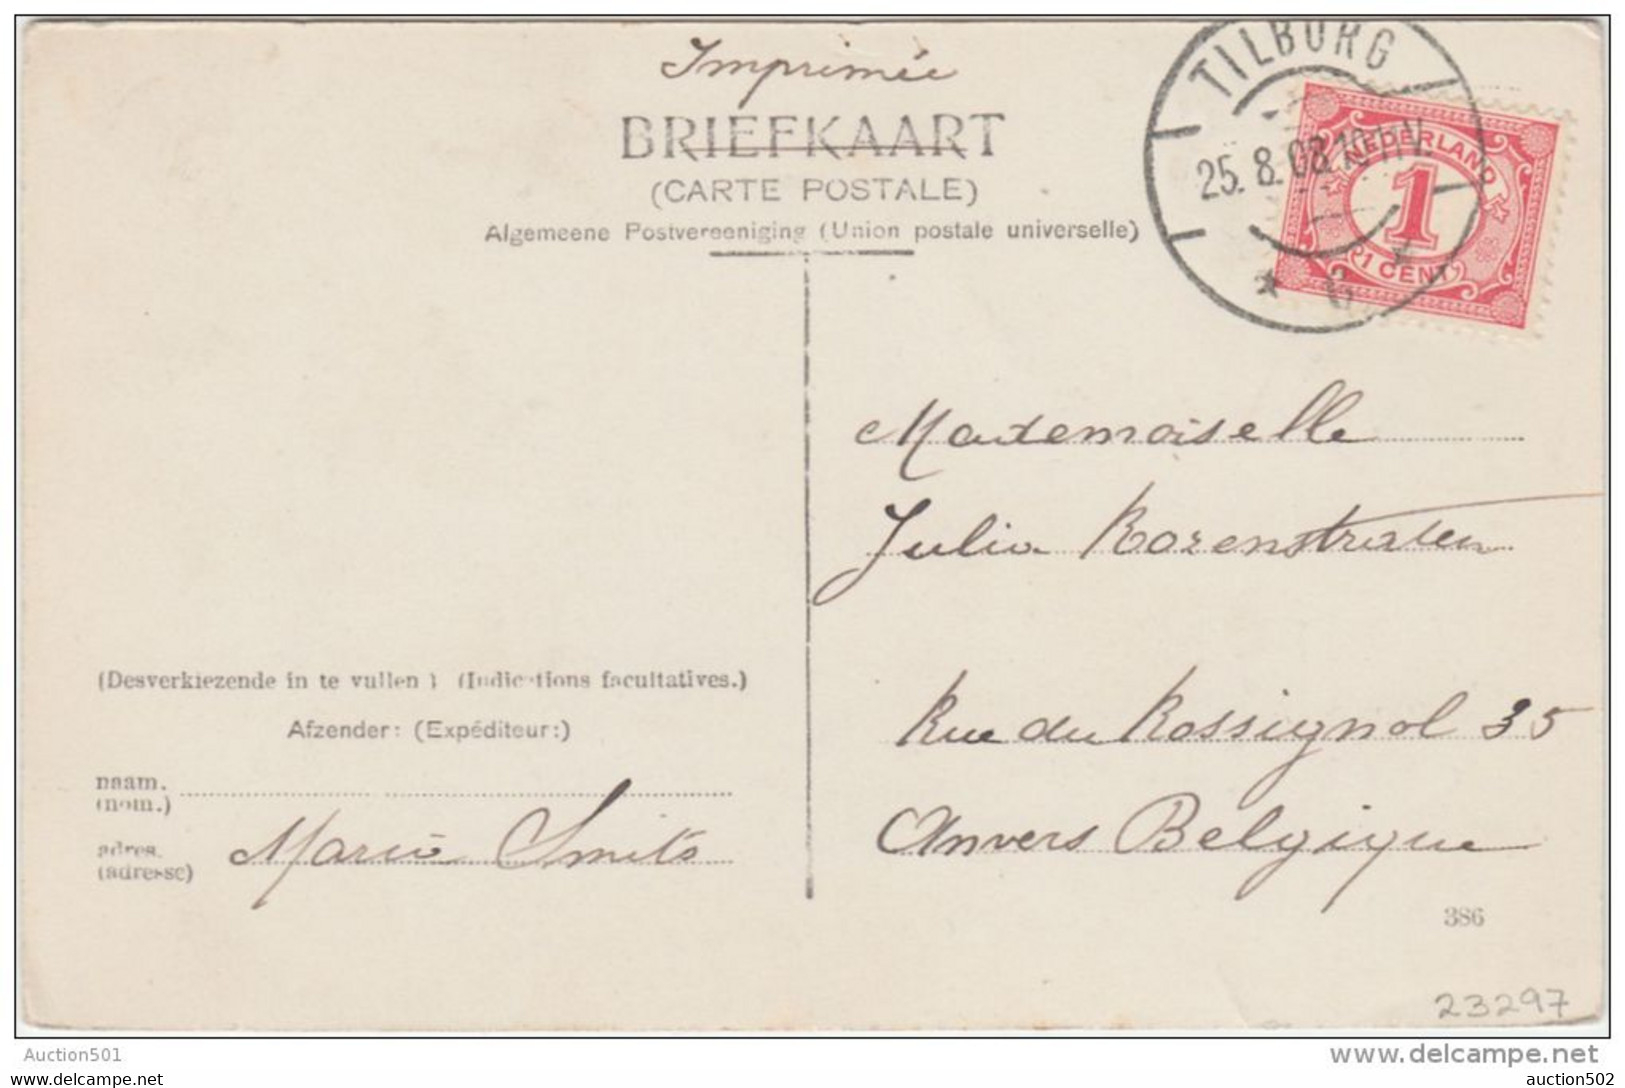 Imprimée
BRIEFKAART
(CARTE POSTALE)
Algemeene Postvereeniging (Union postale universelle)
TILBURG
25.8.08.10-11V.
* 6 *
NEDERLAND
1
1 CENT
Mademoiselle
Julia Rozenstraten
Rue du Rossignol 35
Anvers Belgique
(Desverkiezende in te vullen) (Indications facultatives.)
Afzender: (Expéditeur:)
naam.
(nom.)
adres.
(adresse)
Maria Smits
386
23297
www.delcampe.net
Auction501
auction501
auction502